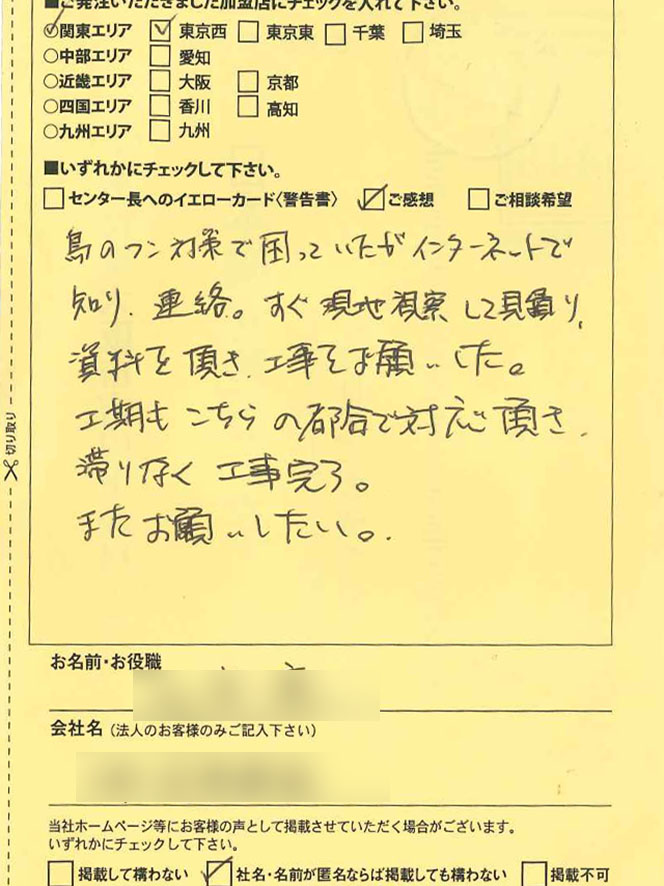 ■ご発注いただきました加盟店にチェックを入れて下さい。
○関東エリア 東京西 東京東 千葉 埼玉
○中部エリア 愛知
○近畿エリア 大阪 京都
○四国エリア 香川 高知
○九州エリア 九州
■いずれかにチェックして下さい。
センター長へのイエローカード〈警告書〉 ご感想 ご相談希望
鳥のフン対策で困っていたがインターネットで
知り、連絡。すぐ現地視察して見積り、
資料を頂き、工事をお願いした。
工期もこちらの都合で対応頂き、
滞りなく工事完了。
またお願いしたい。
切り取り
お名前・お役職
会社名(法人のお客様のみご記入下さい)
当社ホームページ等にお客様の声として掲載させていただく場合がございます。
いずれかにチェックして下さい。
掲載して構わない 社名・名前が匿名ならば掲載しても構わない 掲載不可